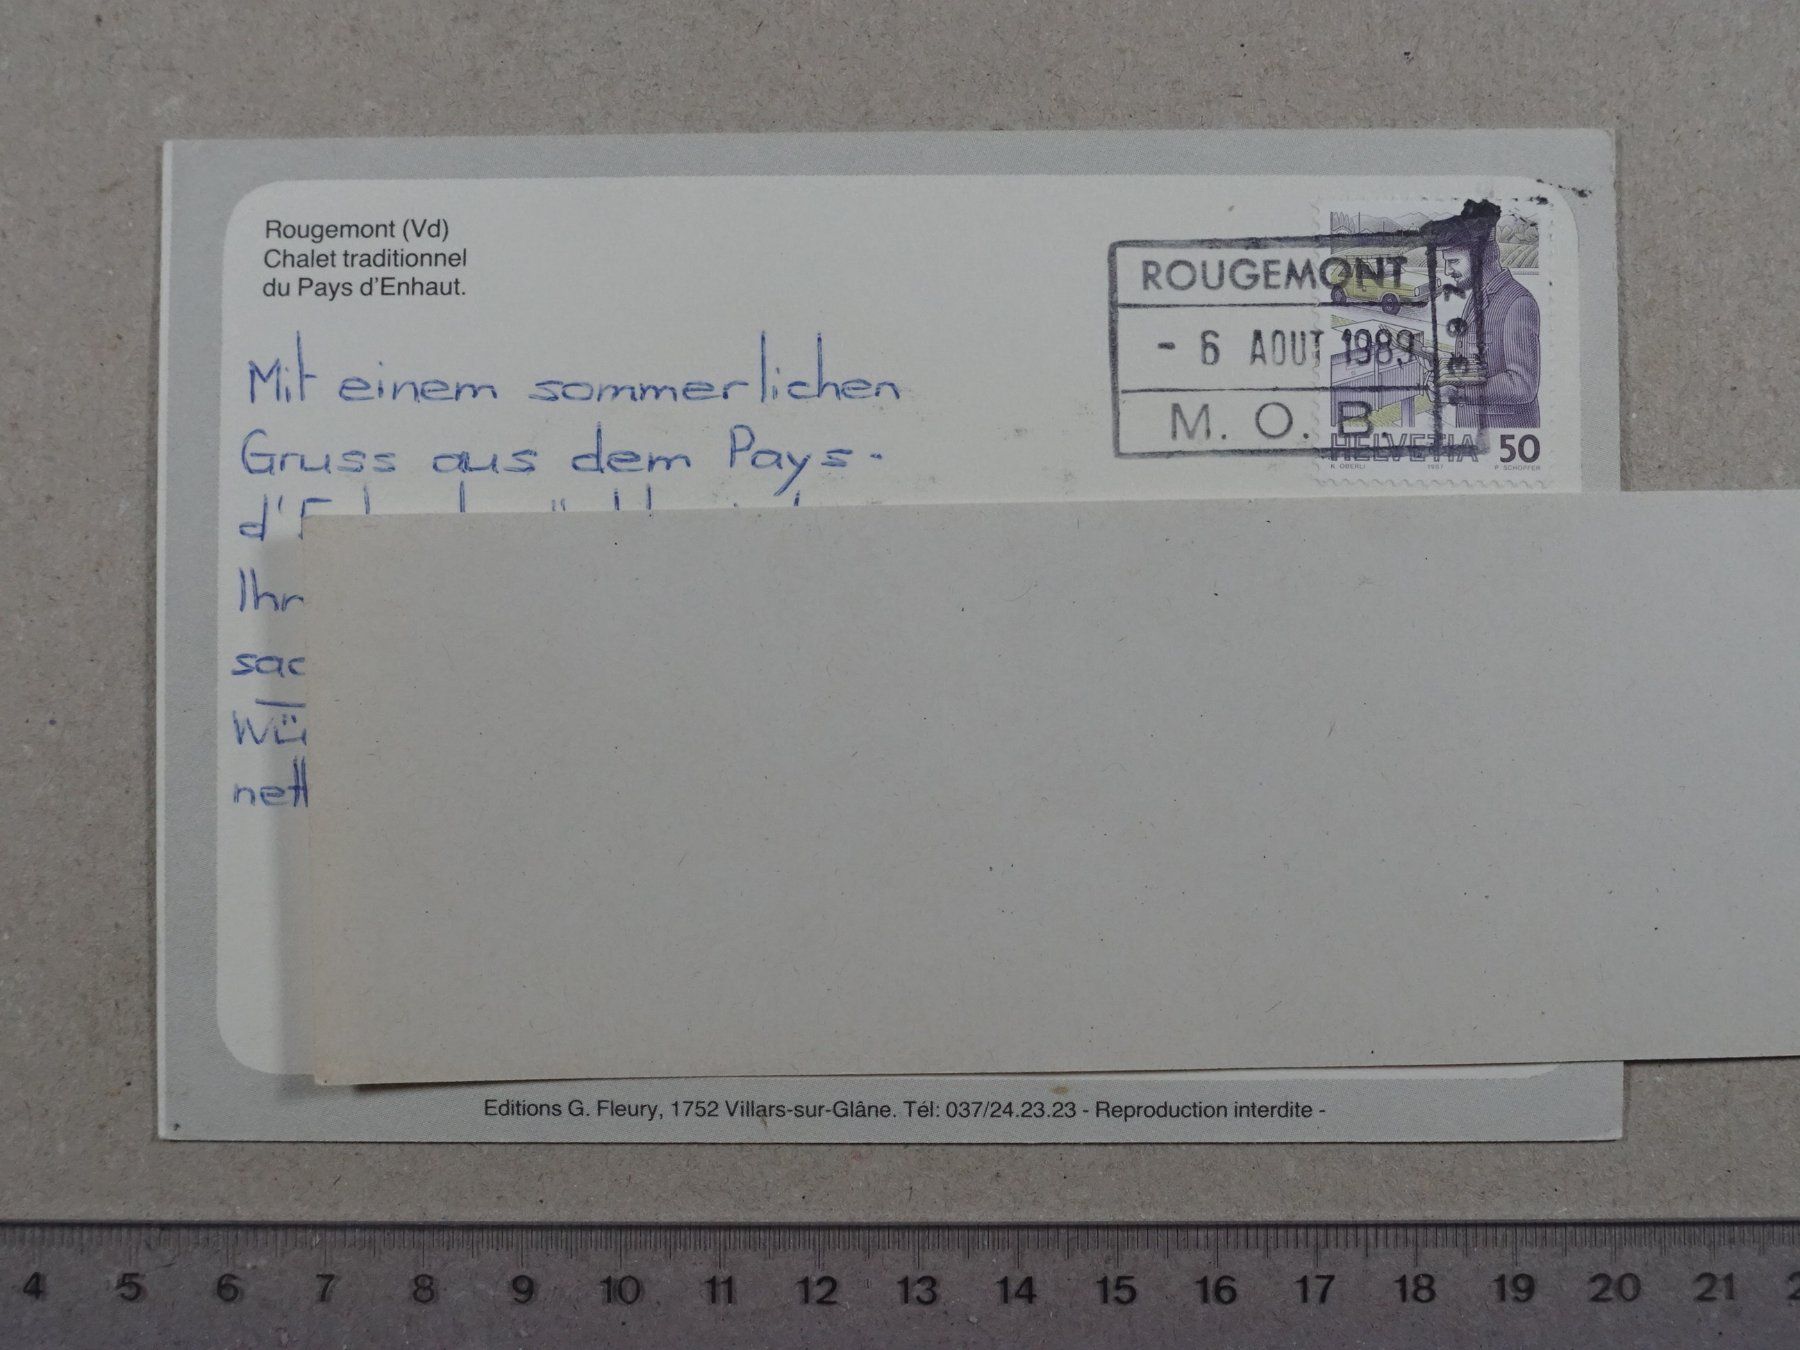 Rougemont (Vd)
Chalet traditionnel
du Pays d'Enhaut.
ROUGEMONT
- 6 AOUT 1989
M. O. B.
HELVETIA 50
K. OBERLI 1987 P. SCHOPFER
Mit einem sommerlichen
Gruss aus dem Pays-
Editions G. Fleury, 1752 Villars-sur-Glâne. Tél: 037/24.23.23 - Reproduction interdite -
4 5 6 7 8 9 10 11 12 13 14 15 16 17 18 19 20 21